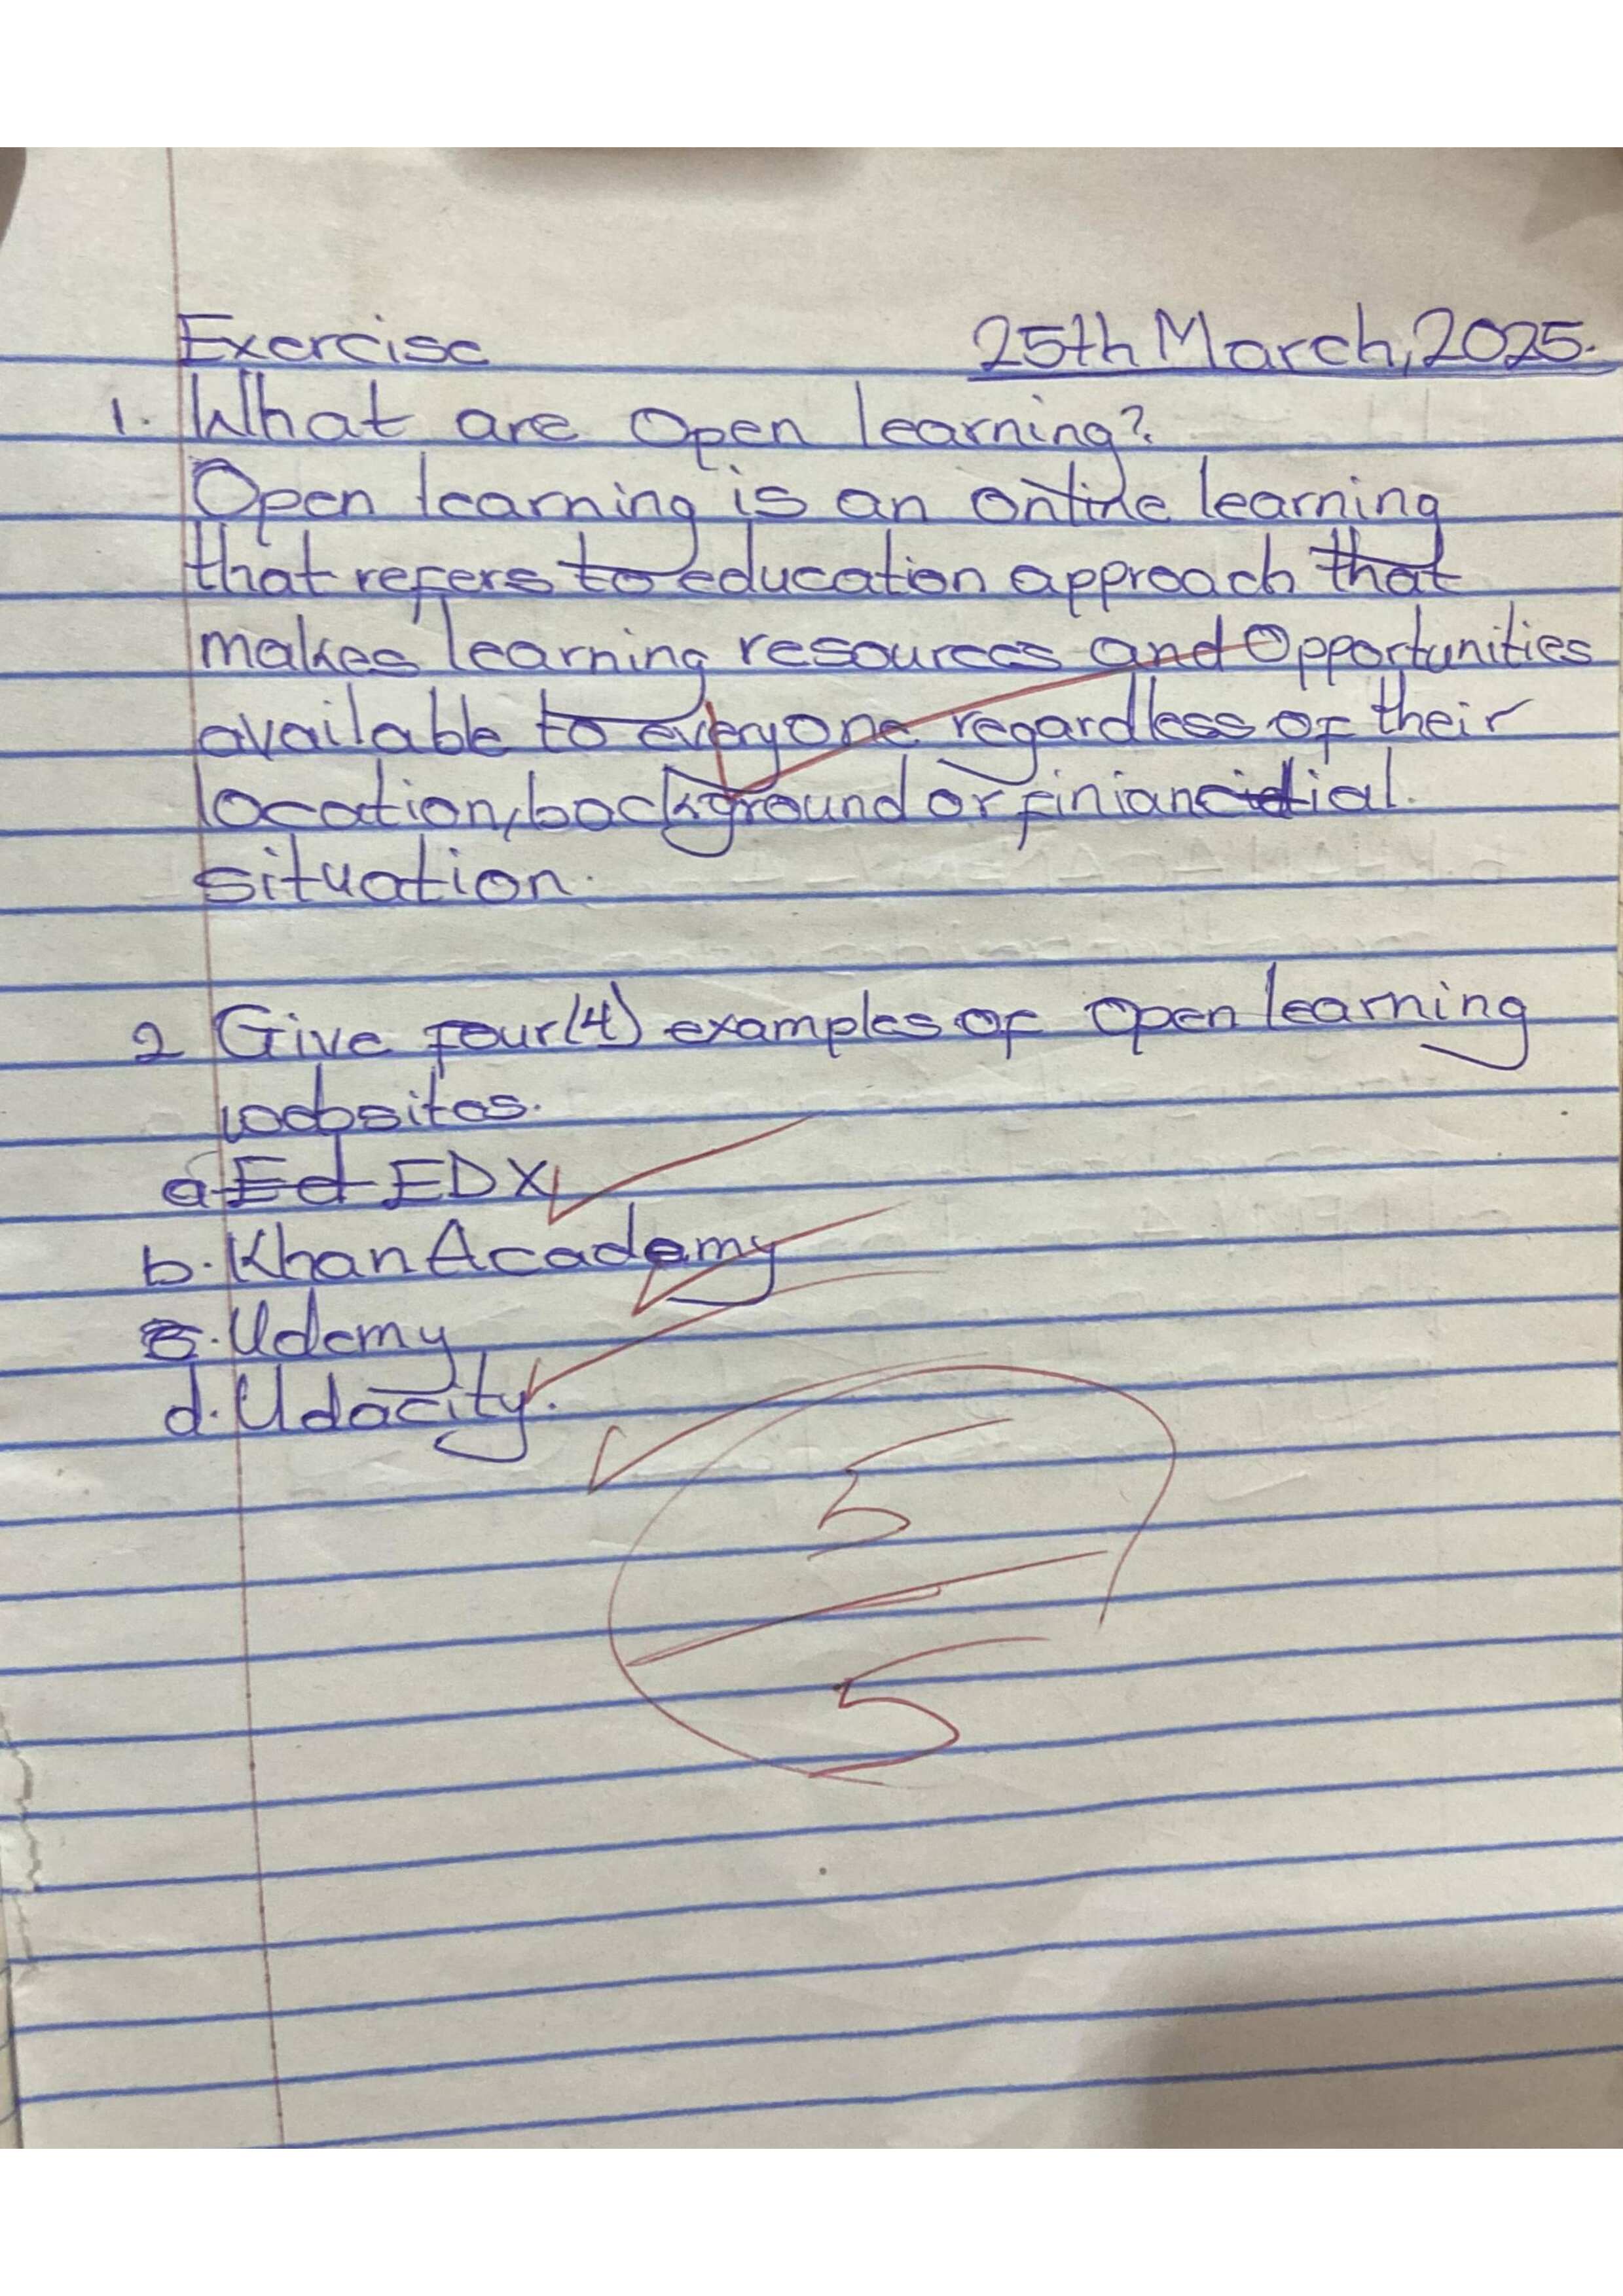 Exercise 25th March, 2025.
1. What are Open learning?
Open learning is an online learning
that refers to education approach that
makes learning resources and Opportunities
available to everyone regardless of their
location, background or finiancial.
situation.
2 Give four (4) examples of Open learning
websites.
a EDX
b. Khan Academy
c. Udemy
d. Udacity.
5
5